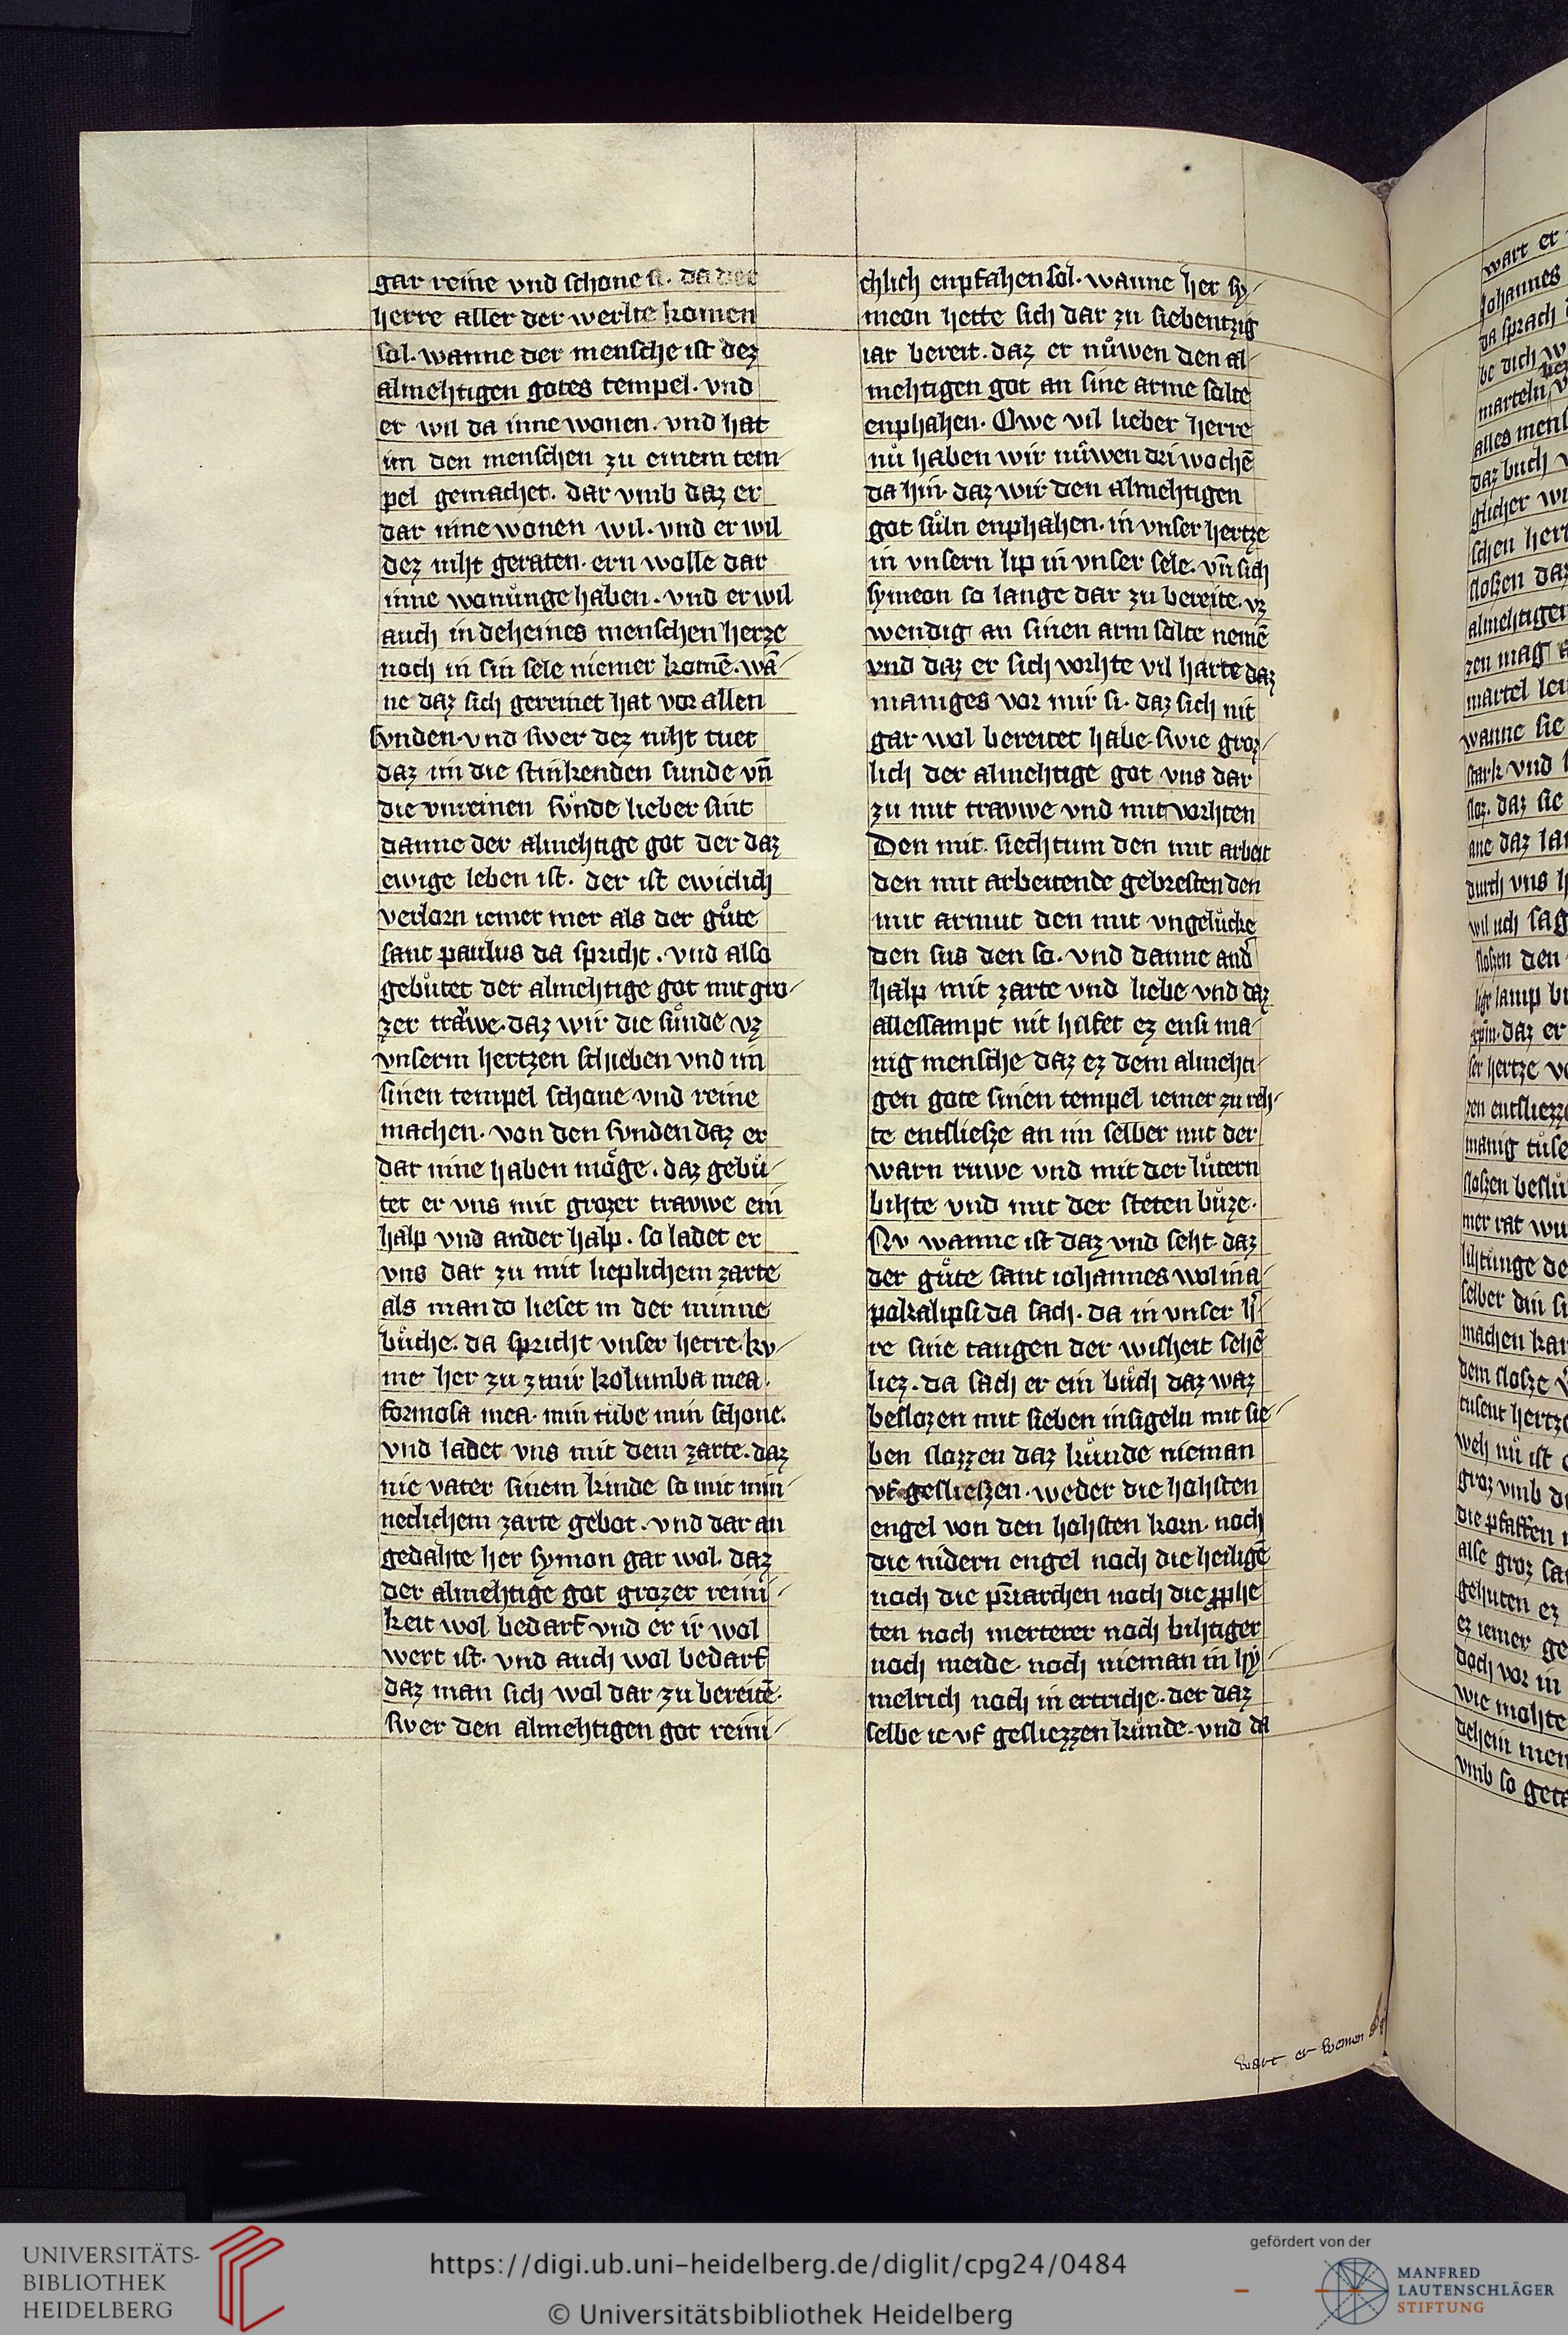 gar reine vnd schone si. da der
herre aller der werlte komen
sol. wanne der mensche ist dez
almehtigen gotes tempel. vnd
er wil da inne wonen. vnd hat
im den menschen zu einem tem-
pel gemachet. dar vmb daz er
dar inne wonen wil. vnd er wil
dez niht geraten. ern wolle dar
inne wonuͤnge haben. vnd er wil
auch in deheines menschen herze
noch in sin sele niemer komē. wā-
ne daz sich gereinet hat vor allen
sṽnden. vnd swer dez niht tuet
daz im die stinkenden sunde vñ
die vnreinen svͤnde lieber sint
danne der almehtige got der daz
ewige leben ist. der ist ewiclich
verlorn iemer mer als der guͤte
sant paulus da spricht. vnd also
gebuͤtet der almehtige got mit gro-
zer traͤwe. daz wir die suͤnde vz
vnserm hertzen schieben vnd im
sinen tempel schone vnd reine
machen. von den svnden daz er
dar inne haben moͤge. daz gebuͤ-
tet er vns mit grozer travwe ein
halp vnd ander halp. so ladet er
vns dar zu mit lieplichem zarte
als man do lieset in der minne
buͤche. da spricht vnser herre. kv-
me her zu zmir kolumba mea.
formosa mea. min tuͤbe min schone.
vnd ladet vns mit dem zarte. daz
nie vater sinem kinde so mit min-
neclichem zarte gebot. vnd dar an
gedahte her symon gar wol. daz
der almehtige got grozer reini-
keit wol bedarf vnd er ir wol
wert ist. vnd auch wol bedarf
daz man sich wol dar zu bereitē.
Swer den almehtigen got reini-
chlich enpfahen sol. wanne her sy-
meon hette sich dar zu siebentzig
iar bereit. daz er nuͤwen den al-
mehtigen got an sine arme solte
enphahen. Owe vil lieber herre
nuͤ haben wir nuͤwen dri wochē
da hin. daz wir den almehtigen
got suͤln enphahen. in vnser hertze
in vnsern lip in vnser sele. vñ sich
symeon so lange dar zu bereite. vz
wendig an sinen arm solte nemē
vnd daz er sich vorhte vil harte daz
maniges vor mir si. daz sich nit
gar wol bereitet habe. swie groz-
lich der almehtige got vns dar
zu mit travwe vnd mit vorhten
Den mit. siechtum den mit arbeit
den mit arbeitende gebresten den
mit armut den mit vngeluͤcke
den sus den so. vnd danne and'
halp mit zarte vnd liebe vnd daz
allessampt nit hilfet ez ensi ma-
nig mensche daz ez dem almehti-
gen gote sinen tempel iemer zu reh-
te entsliesze an im selber mit der
warn ruwe vnd mit der luͤtern
bihte vnd mit der steten buͤze.
Nv wanne ist daz vnd seht. daz
der guͤte sant iohannes wol in a-
pokalipsi da sach. da in vnser h'-
re sine taugen der wisheit sehē
liez. da sach er ein buͤch daz waz
beslozen mit sieben insigeln mit sie-
ben slozzen daz kuͤnde nieman
vf gesliesz̄en. weder die hohsten
engel von den hohsten korn. noch
die nidern engel noch die heiligē
noch die pr̄iarchen noch die ꝓphe
ten noch merterer noch bihtiger
noch meide. noch nieman in hẏ-
melrich noch in ertriche. der daz
selbe ie vf gesliezzen kuͤnde. vnd da
wart er komen
wart et
Johannes
da sprach
be dich w
marteln
alles mens
daz buch
glicher wi
schen hert
sloszen daz
almehtigen
zen mag
martel
wanne sie
stark vnd
sloz. daz sie
ane daz
durch vns
wil uch sag
sloszen den
lamp
daz er
ser hertze
zen entsliezze
manig tuͤse
sloszen
mer rat
selber din si
machen kan
dem slosze
tusent hertze
weh nuͤ ist
groz vmb
die pfaffen
alse groz
gehuten ez
ez iemer ge
doch vor in
wie mohte
dehein men
vmb so get
UNIVERSITÄTS-
BIBLIOTHEK
HEIDELBERG
https://digi.ub.uni-heidelberg.de/diglit/cpg24/0484
© Universitätsbibliothek Heidelberg
gefördert von der
MANFRED
LAUTENSCHLÄGER
STIFTUNG